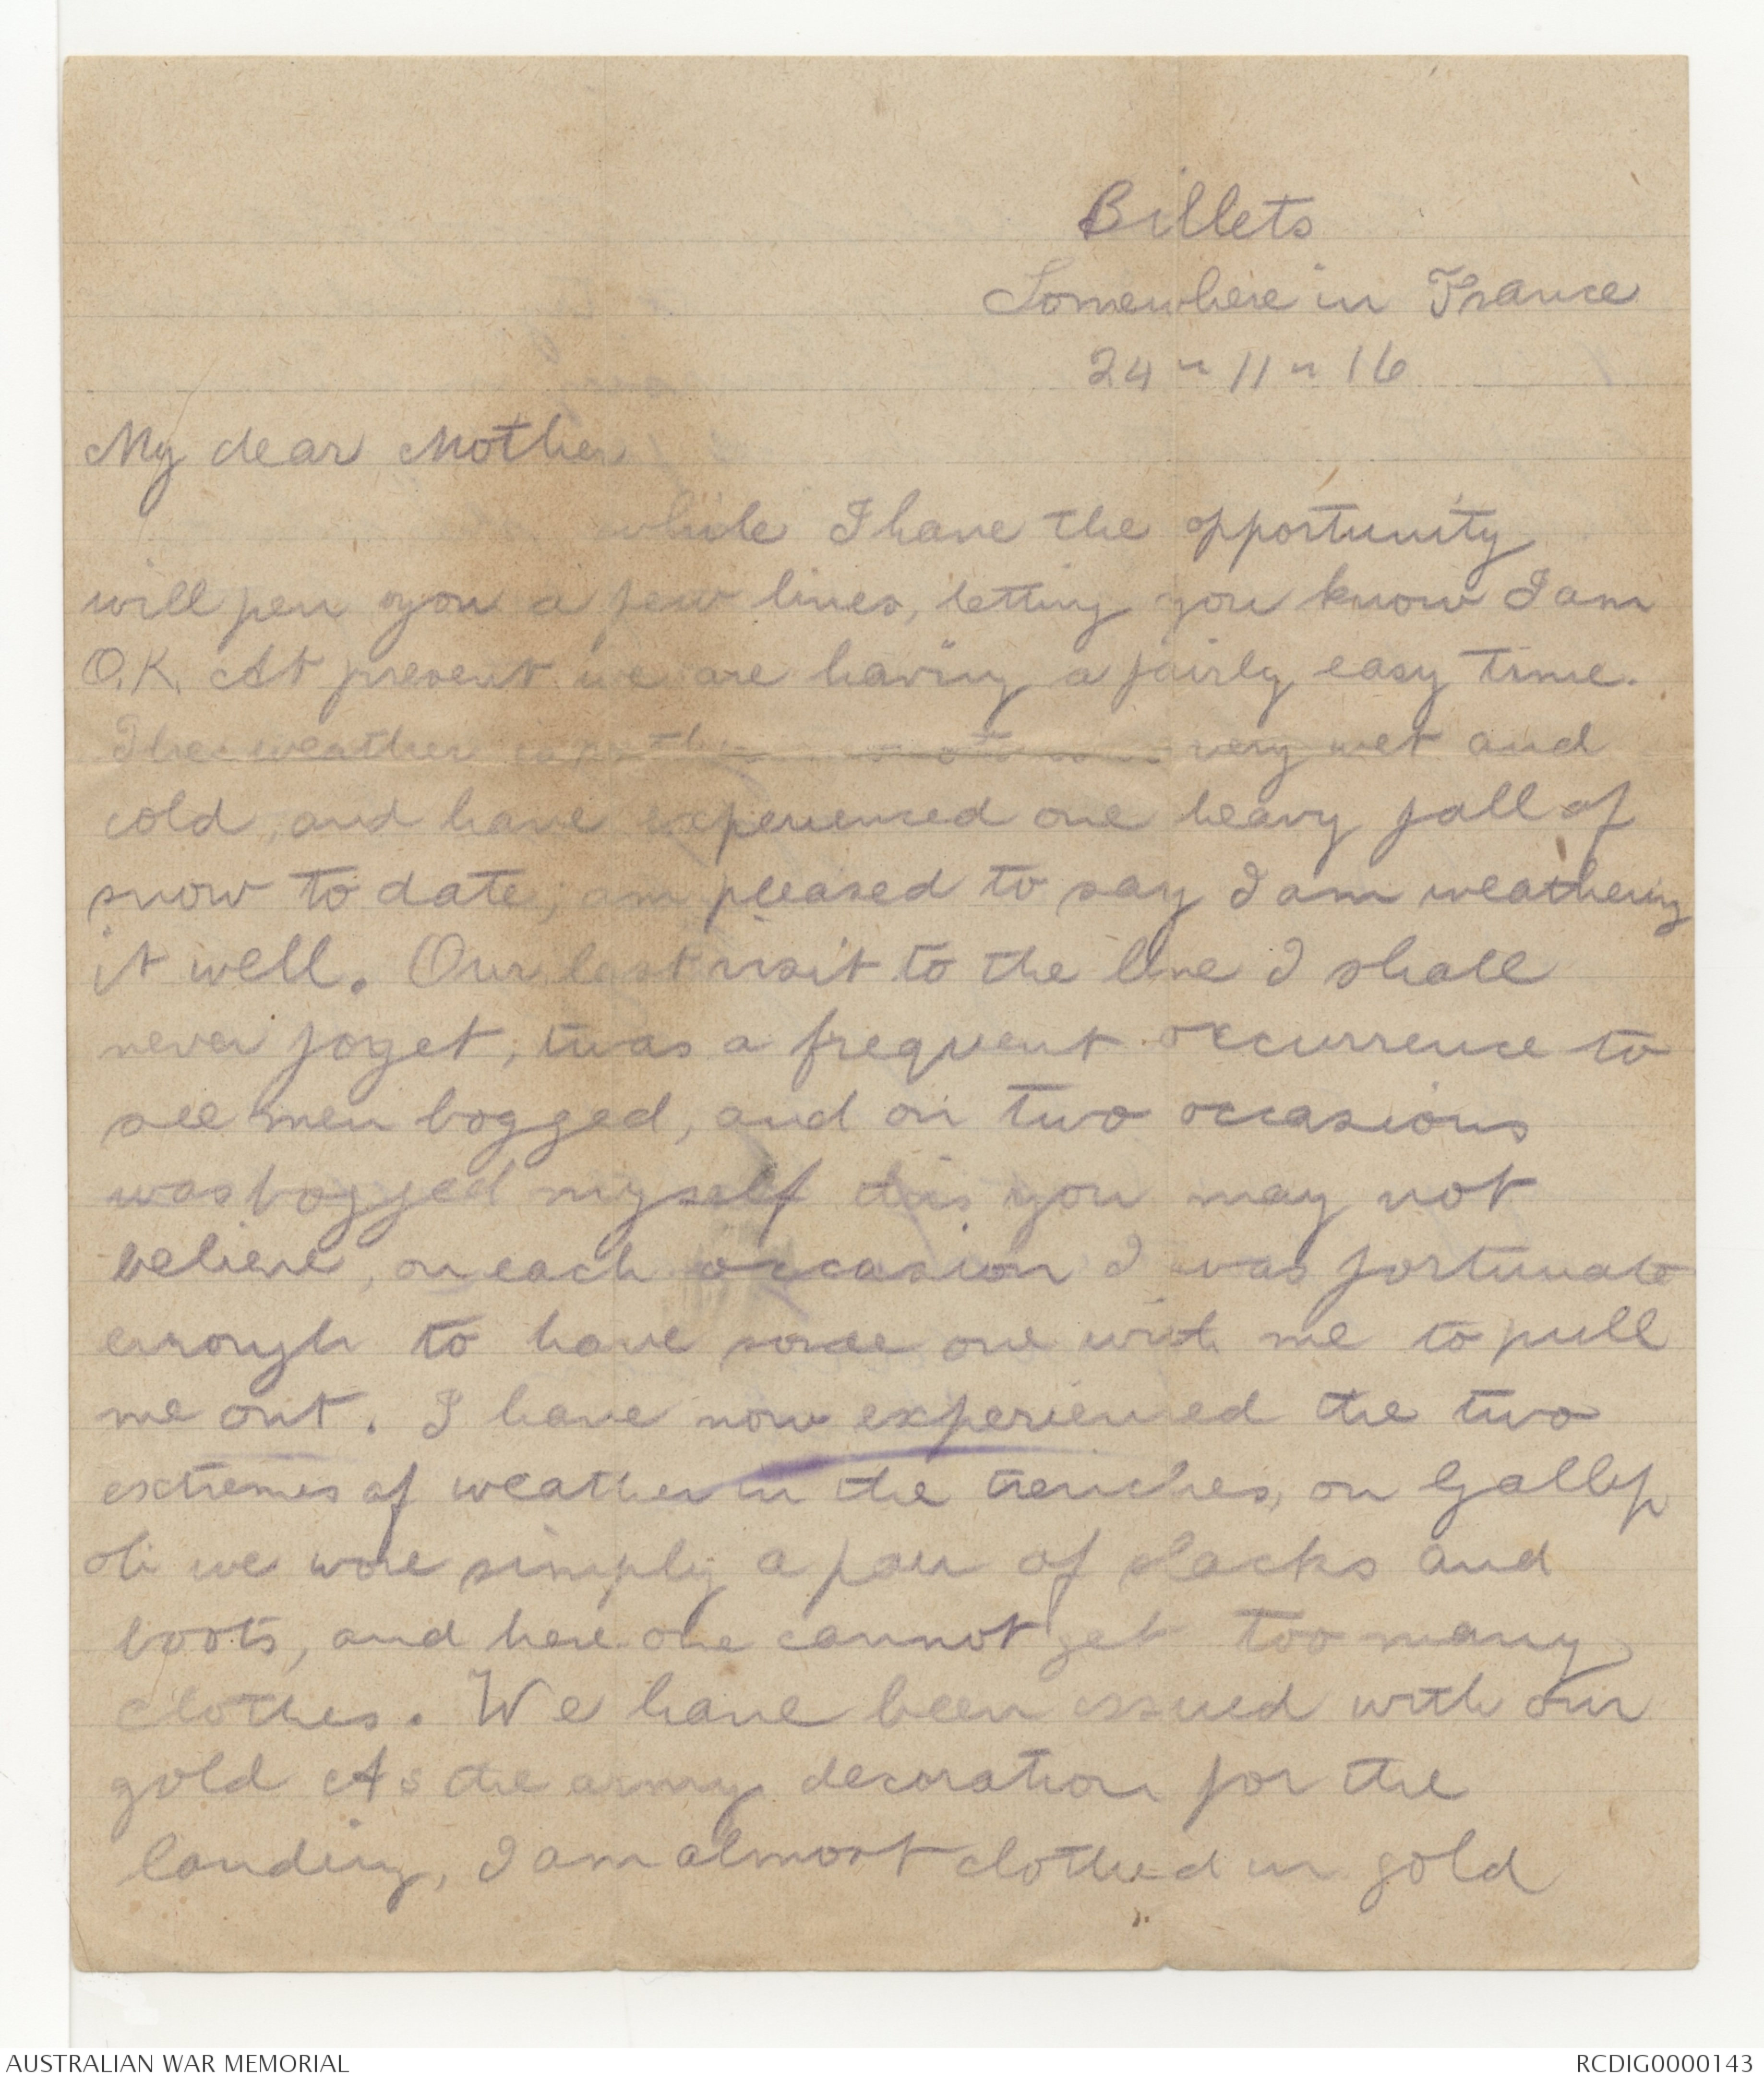 Billets
Somewhere in France
24 " 11 " 16
My dear Mother
while I have the opportunity
will pen you a few lines, letting you know I am
O.K. At present we are having a fairly easy time.
The weather very wet and
cold, and have experienced one heavy fall of
snow to date, am pleased to say I am weathering
it well. Our last visit to the line I shall
never forget, twas a frequent occurrence to
see men bogged, and on two occasions
was bogged myself this you may not
believe, on each occasion I was fortunate
enough to have some one with me to pull
me out. I have now experienced the two
extremes of weather in the trenches, on Gallip
oli we wore simply a pair of slacks and
boots, and here one cannot get too many
clothes. We have been issued with our
gold As the army decoration for the
landing, I am almost clothed in gold
AUSTRALIAN WAR MEMORIAL
RCDIG0000143